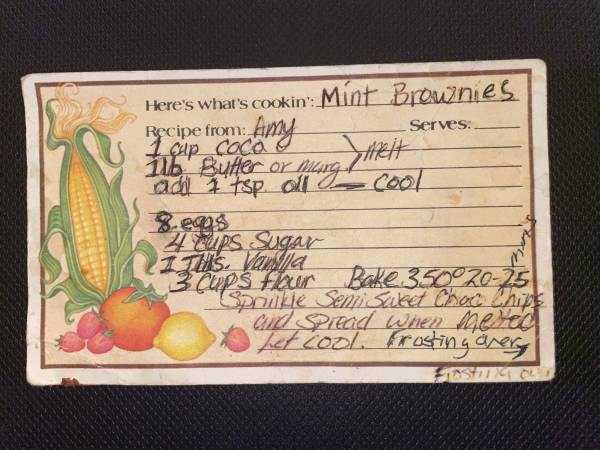 Here's what's cookin': Mint Brownies
Recipe from: Amy Serves:
1 cup coco
1 lb Butter or marg > melt
add 1 tsp oil — cool
8 eggs
4 cups sugar
1 Tbs. Vanilla
3 cups flour Bake 350° 20-25 mins
Sprinkle Semi Sweet Choc Chips
and spread when melted
Let cool. Frosting over →
Frosting